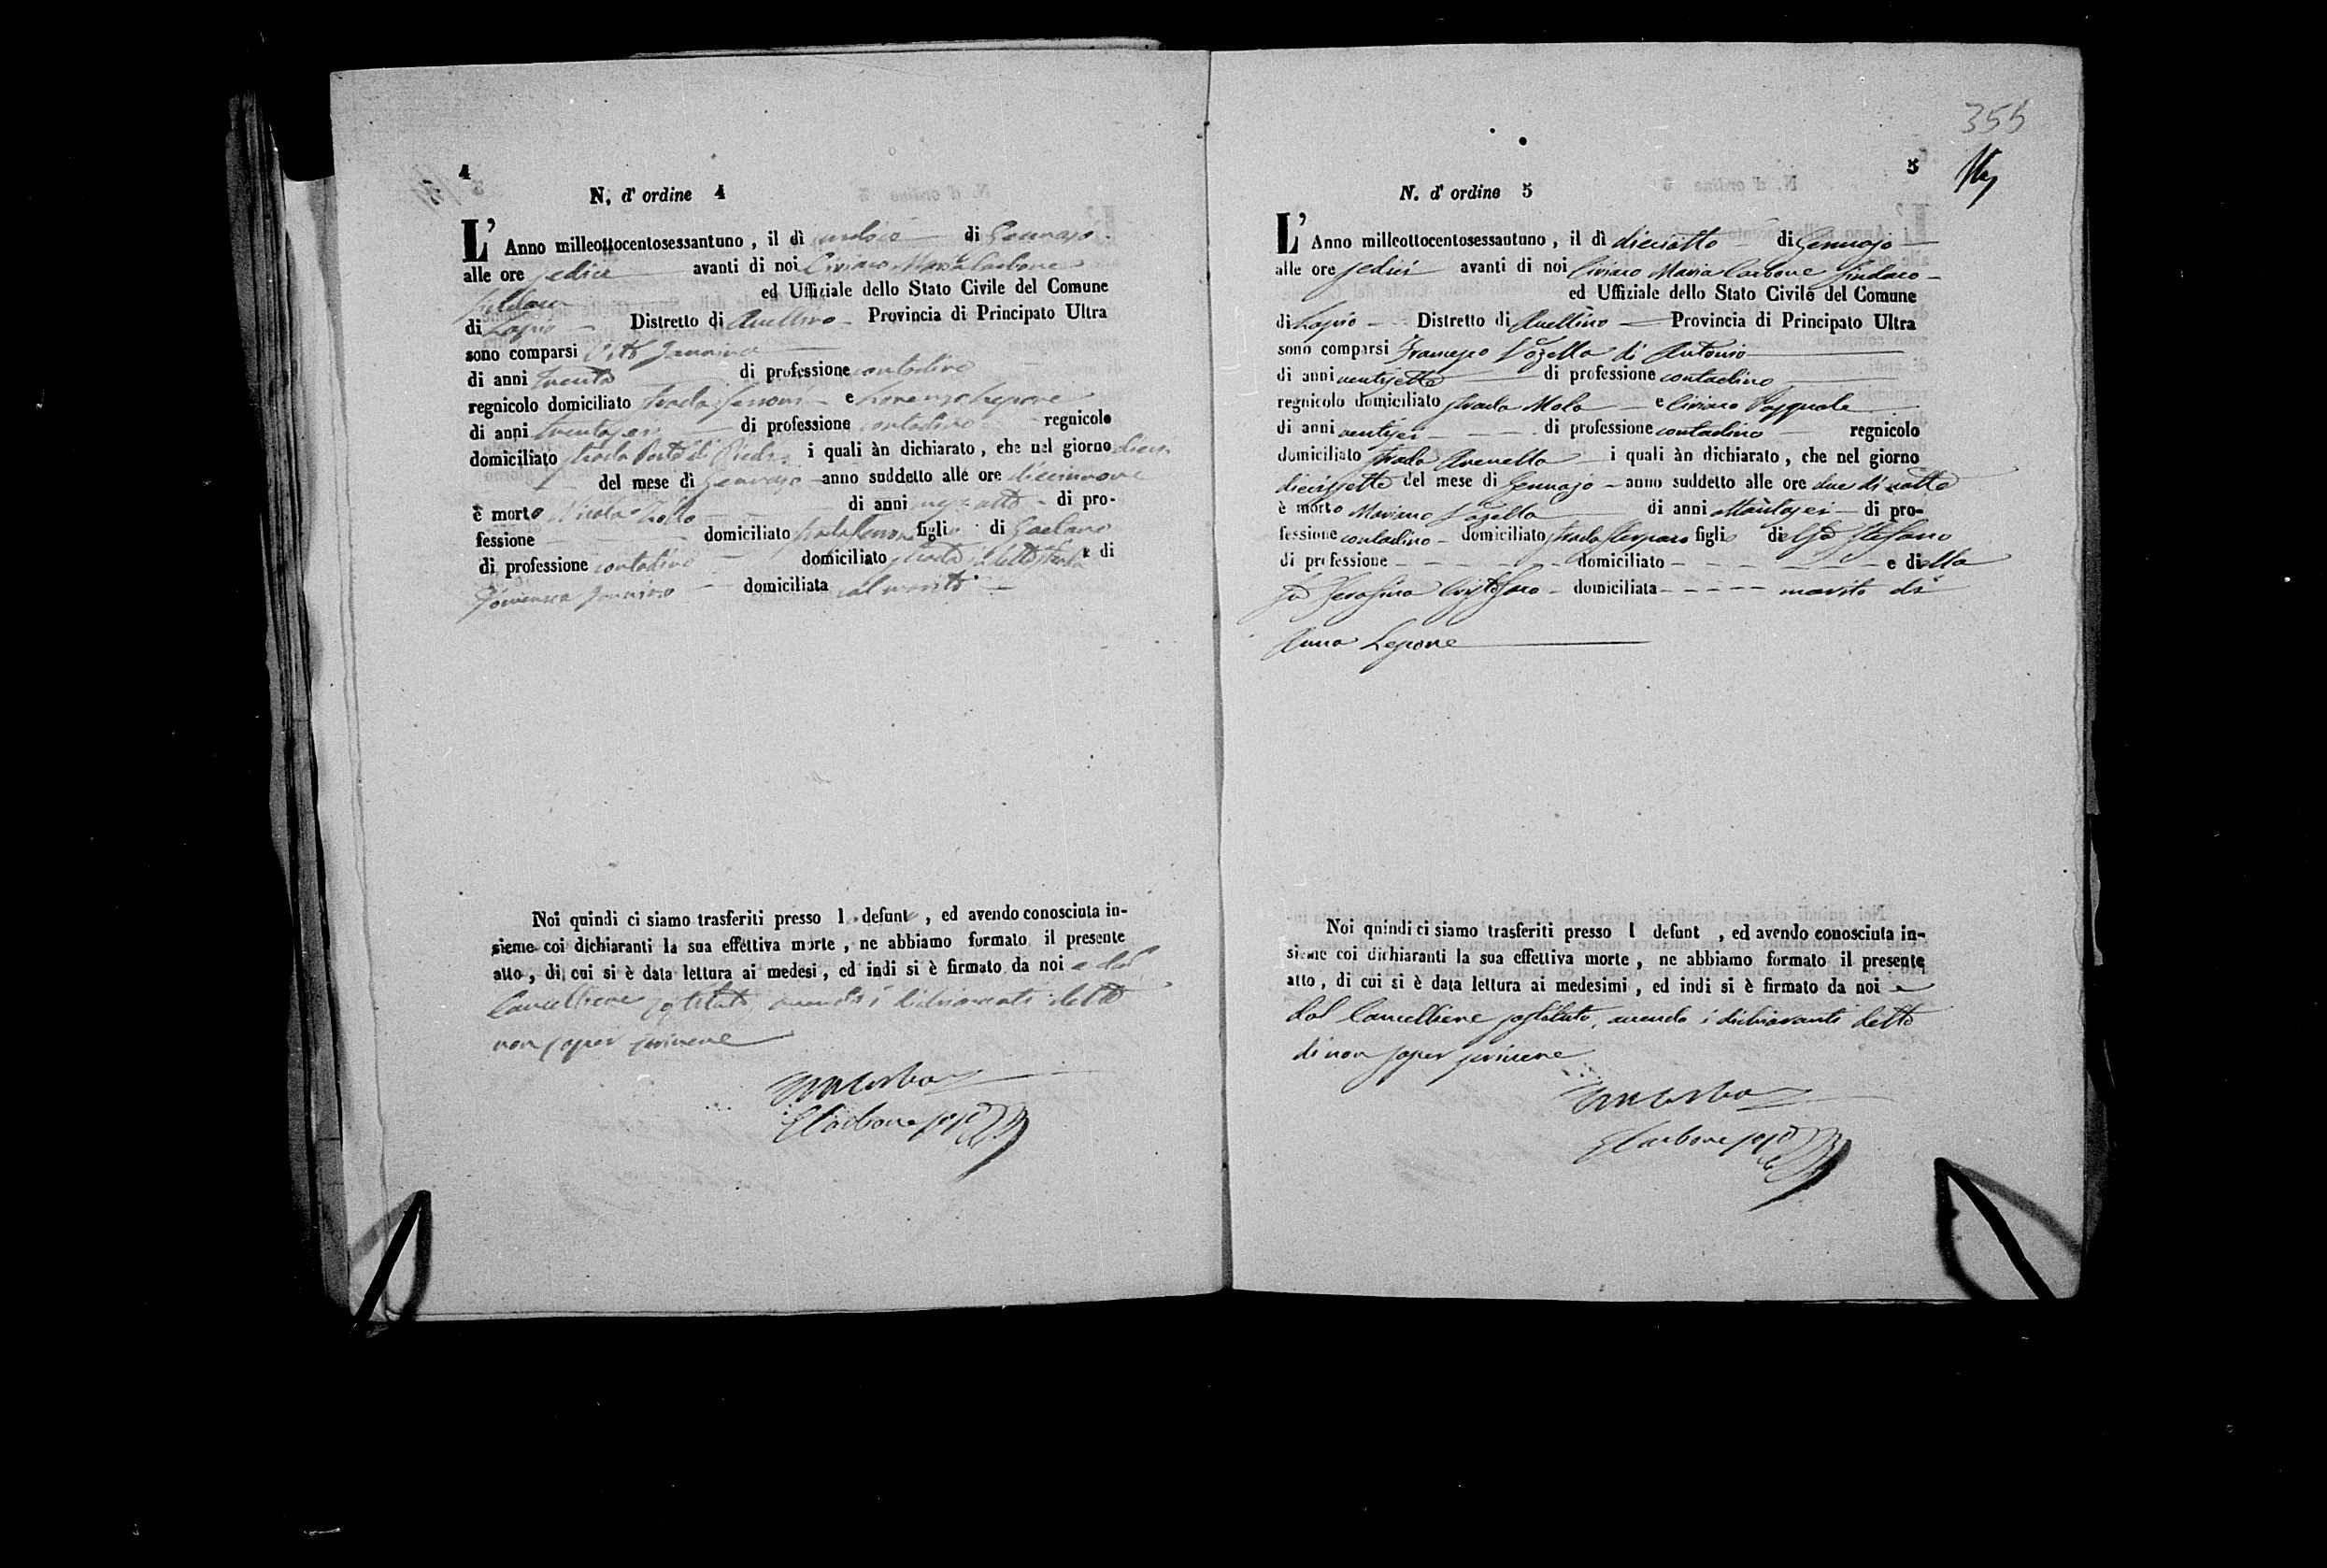 4
N. d' ordine 4
L' Anno milleottocentosessantuno, il dì undici di Gennajo
alle ore sedici avanti di noi Ciriaco Maria Carbone
Sindaco ed Uffiziale dello Stato Civile del Comune
di Lapio Distretto di Avellino Provincia di Principato Ultra
sono comparsi Vito Jannino
di anni trenta di professione contadino
regnicolo domiciliato strada e Lorenzo Lepore
di anni trentasei di professione contadino regnicolo
domiciliato strada i quali àn dichiarato, che nel giorno dieci
del mese di Gennajo anno suddetto alle ore diecinnove
è morto Nicola di anni di pro-
fessione domiciliato strada figlio di Gaetano
di professione contadino domiciliato strada e di
Jannino domiciliata col marito
Noi quindi ci siamo trasferiti presso l defunt , ed avendo conosciuta in-
sieme coi dichiaranti la sua effettiva morte, ne abbiamo formato il presente
atto, di cui si è data lettura ai medesi, ed indi si è firmato da noi e dal
Cancelliere sostituto, avendo i dichiaranti detto
non saper scrivere
355
5
N. d' ordine 5
L' Anno milleottocentosessantuno, il dì dieciotto di Gennajo
alle ore sedici avanti di noi Ciriaco Maria Carbone Sindaco
ed Uffiziale dello Stato Civile del Comune
di Lapio Distretto di Avellino Provincia di Principato Ultra
sono comparsi Francesco Vozella di Antonio
di anni ventisette di professione contadino
regnicolo domiciliato strada Mola e Ciriaco Pasquale
di anni ventisei di professione contadino regnicolo
domiciliato strada Avenella i quali àn dichiarato, che nel giorno
diecissette del mese di Gennajo anno suddetto alle ore due di notte
è morto Mariano Vozella di anni ottantasei di pro-
fessione contadino domiciliato strada figlio del fù Stefano
di professione domiciliato e della
fù Serafina Cristofaro domiciliata marito di
Anna Lepore
Noi quindi ci siamo trasferiti presso l defunt , ed avendo conosciuta in-
sieme coi dichiaranti la sua effettiva morte, ne abbiamo formato il presente
atto, di cui si è data lettura ai medesimi, ed indi si è firmato da noi e
dal Cancelliere sostituto, avendo i dichiaranti detto
di non saper scrivere